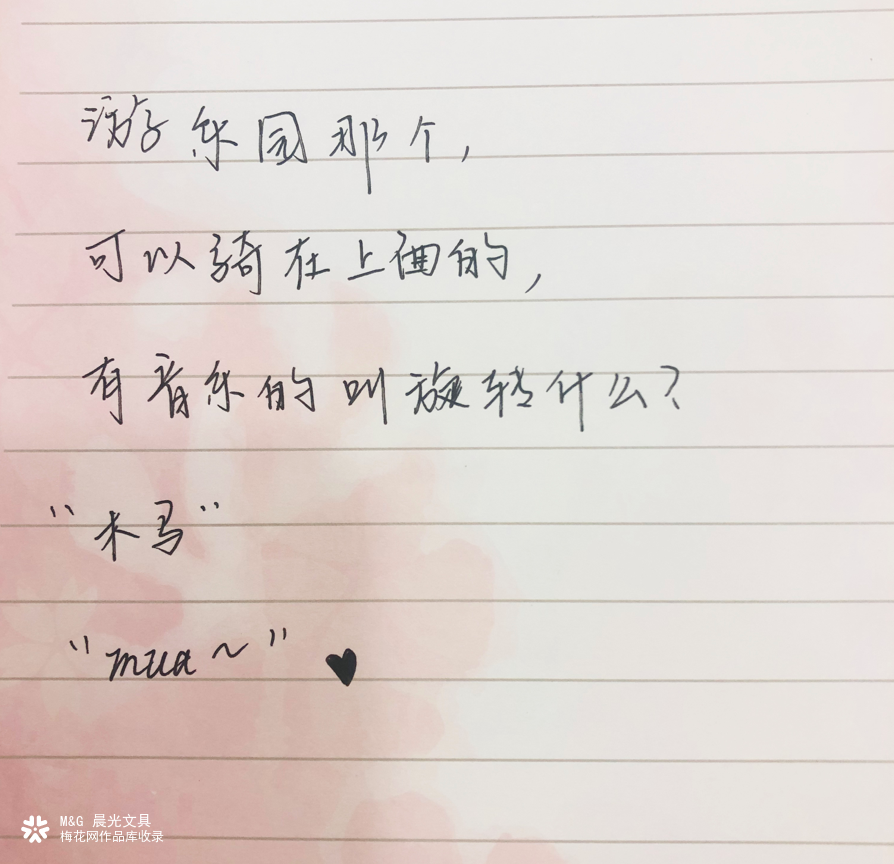 游乐园那个，
可以骑在上面的，
有音乐的叫旋转什么？
"木马"
"mua~"♥
M&G 晨光文具
梅花网作品库收录